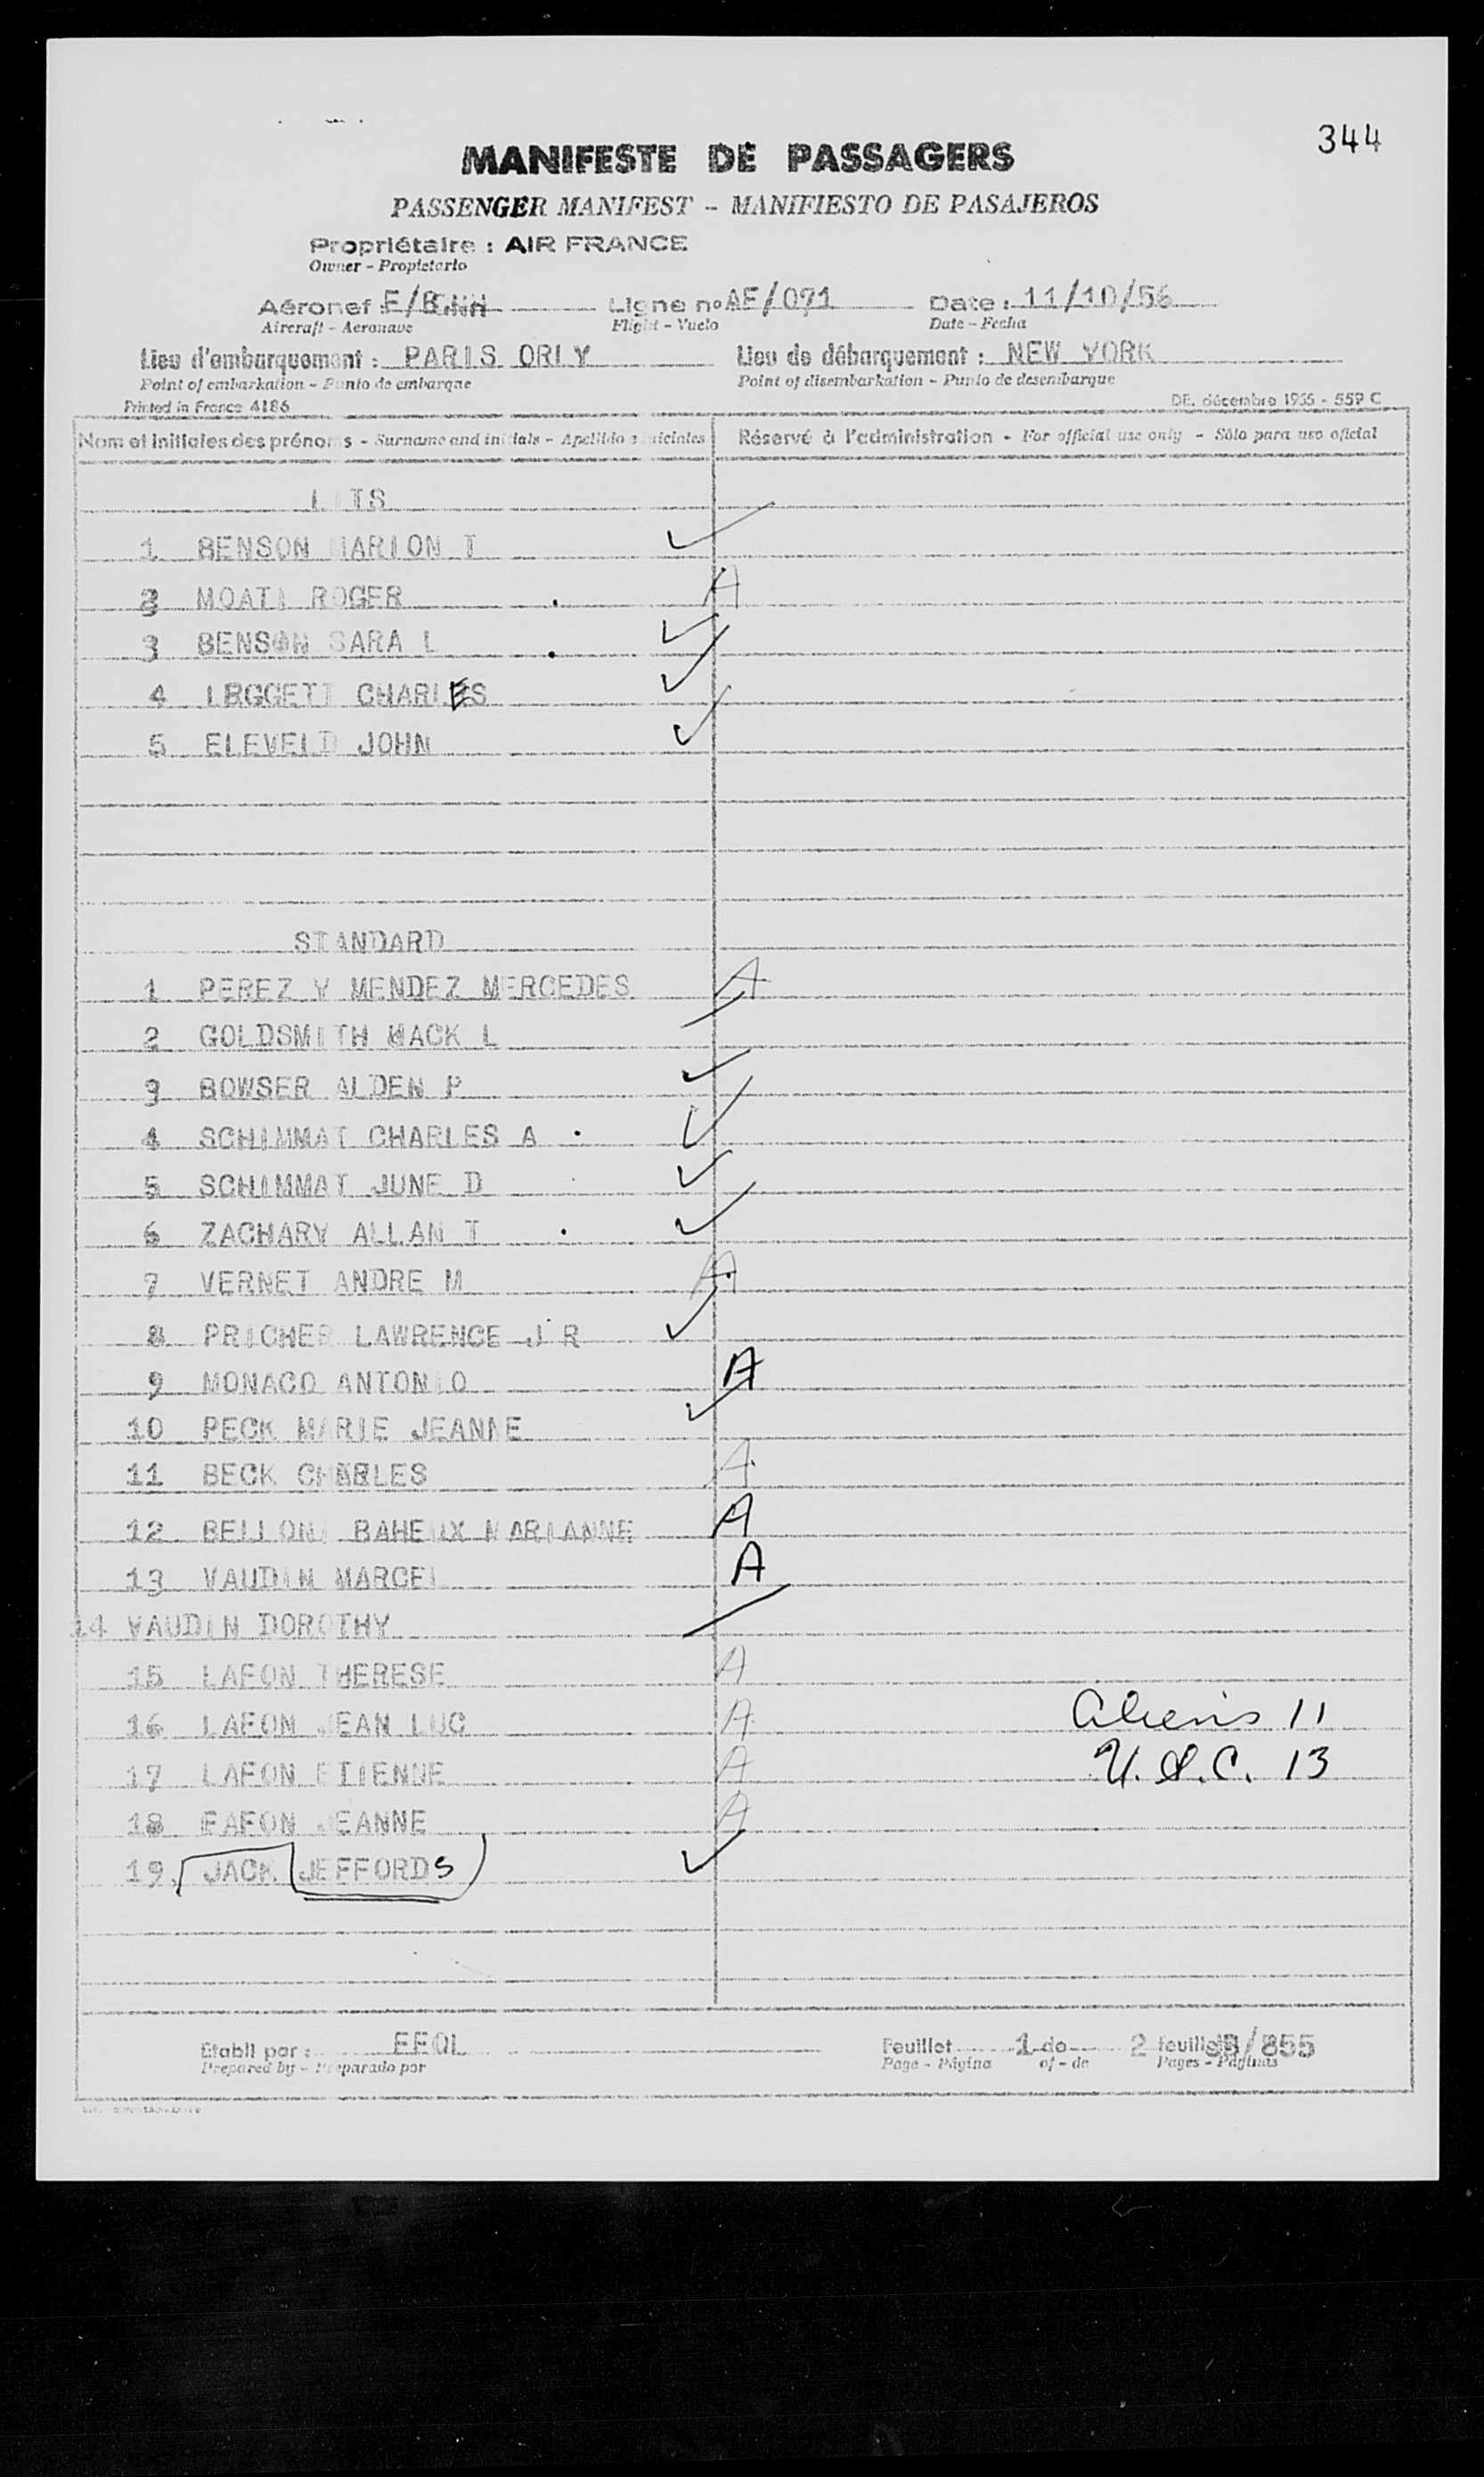 344
MANIFESTE DE PASSAGERS
PASSENGER MANIFEST - MANIFIESTO DE PASAJEROS
Propriétaire : AIR FRANCE
Owner - Propietario
Aéronef : Ligne no AF/071 Date : 11/10/56
Aircraft - Aeronave Flight - Vuelo Date - Fecha
Lieu d'embarquement : PARIS ORLY Lieu de débarquement : NEW YORK
Point of embarkation - Punto de embarque Point of disembarkation - Punto de desembarque
Printed in France 4186 DE. décembre 1955 - 559 C
Nom et initiales des prénoms - Surname and initials - Apellido e iniciales Réservé à l'administration - For official use only - Sólo para uso oficial
LITS
1 BENSON MARION T
2 MOATI ROGER A
3 BENSON SARA L
4 LEGGETT CHARLES
5 ELEVELD JOHN
STANDARD
1 PEREZ Y MENDEZ MERCEDES A
2 GOLDSMITH MACK L
3 BOWSER ALDEN P
4 SCHIMMAT CHARLES A
5 SCHIMMAT JUNE D
6 ZACHARY ALLAN T
7 VERNET ANDRE M A
8 PRICHER LAWRENCE J R
9 MONACO ANTONIO A
10 PECK MARIE JEANNE
11 BECK CHARLES A
12 BELLONI BAHEUX MARIANNE A
13 VAUDIN MARCEL A
14 VAUDIN DOROTHY
15 LAFON THERESE A
16 LAFON JEAN LUC A Aliens 11
17 LAFON ETIENNE A U.S.C. 13
18 FAFON JEANNE A
19. JACK JEFFORDS
Etabli par : EFOL Feuillet 1 de 2 feuillets /855
Prepared by - Preparado por Page - Página of - de Pages - Páginas